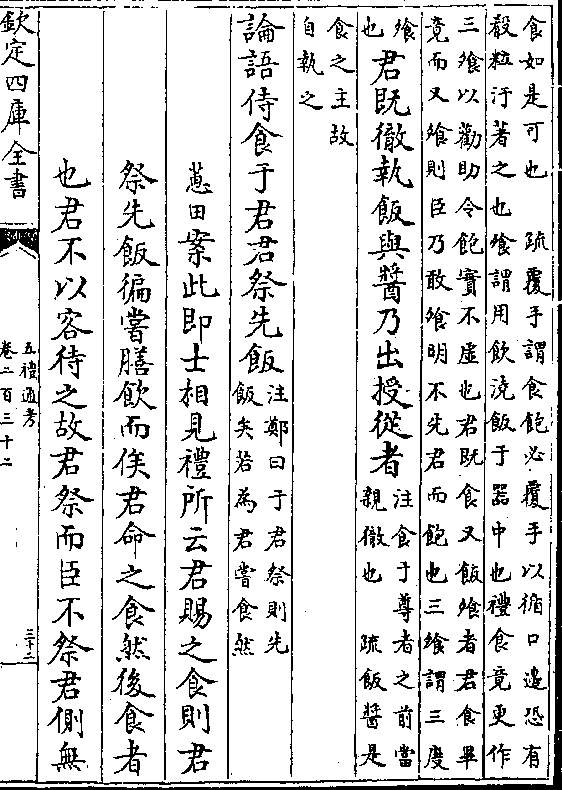 食如是可也　疏覆手謂食飽必覆手以循口邉恐有
殽粒汙著之也飱謂用飲澆飯于器中也禮食竟更作
三飱以勸助令飽實不虛也君既食又飯飱者君食畢
竟而又飱則臣乃敢飱明不先君而飽也三飱謂三度
飱
也
君既徹執飯與醬乃出授從者
注食于尊者之前當
親徹也　疏飯醬是
食之主故
自執之
論語侍食于君君祭先飯
注鄭曰于君祭則先
飯矣若為君嘗食然
蕙田案此即士相見禮所云君賜之食則君
祭先飯徧嘗膳飲而俟君命之食然後食者
也君不以客待之故君祭而臣不祭君側無
欽定四庫全書
五禮通考
卷二百三十二
三十二